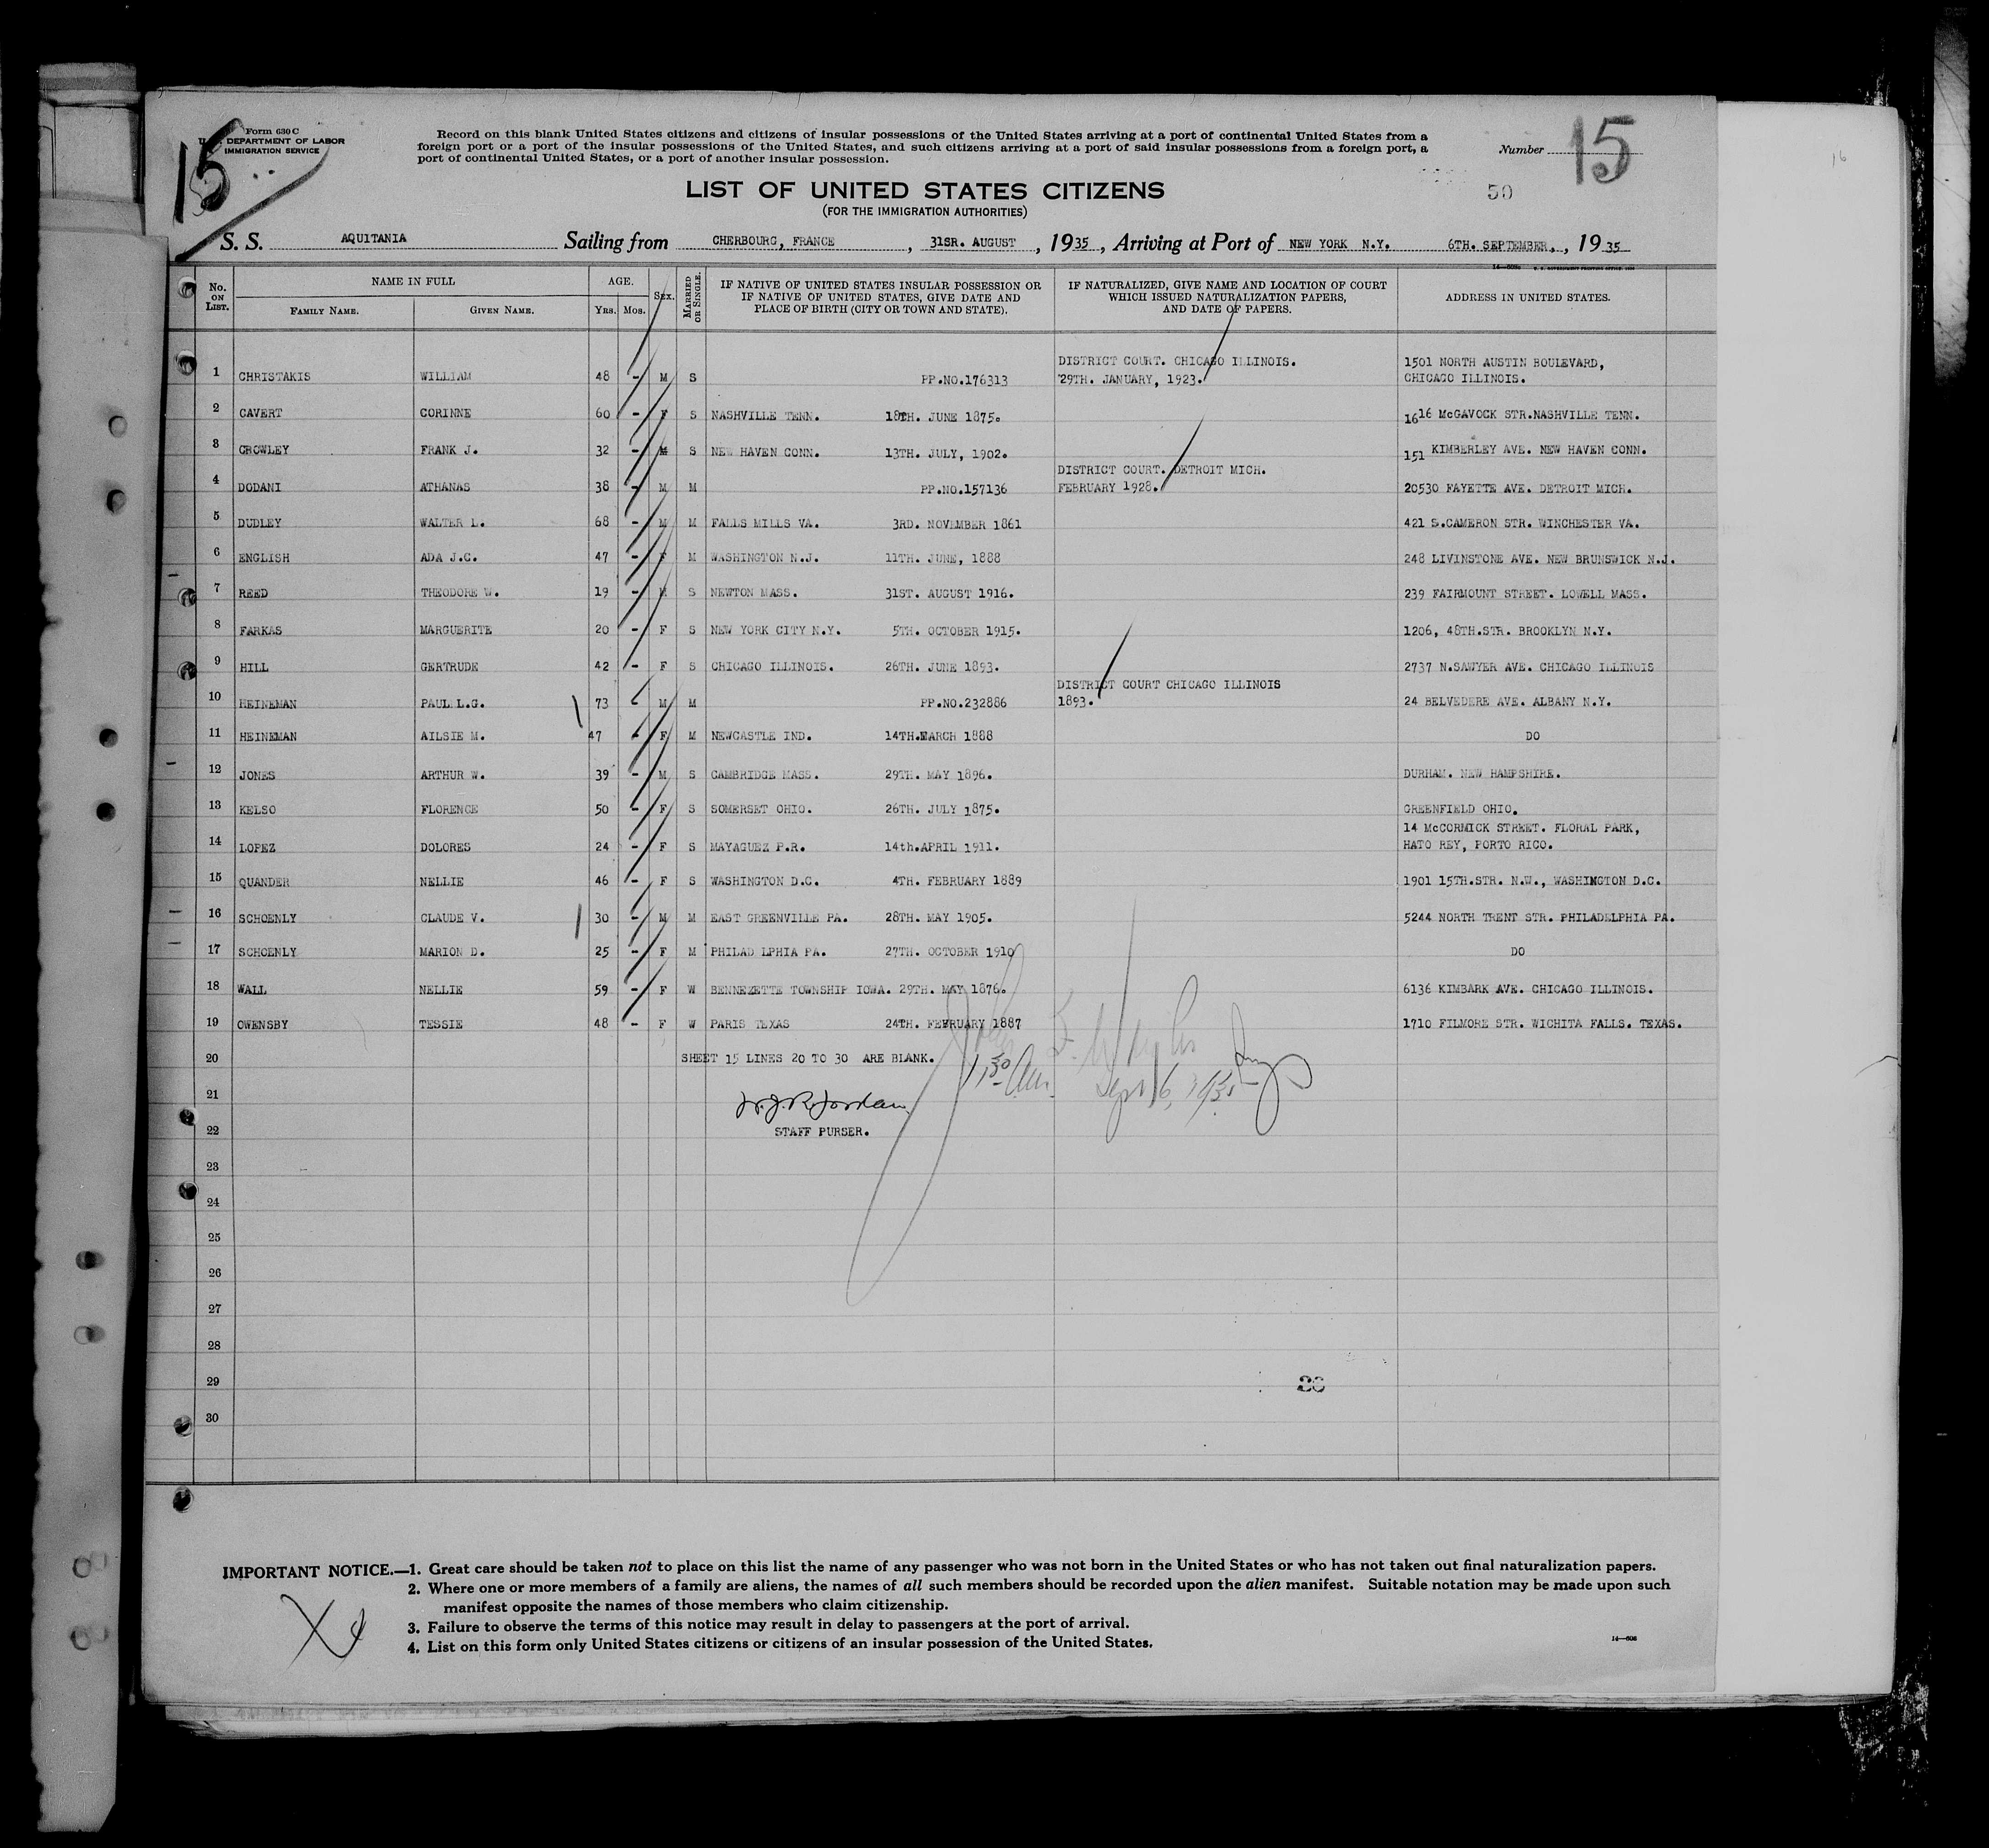 Form 630 C
U. S. DEPARTMENT OF LABOR
IMMIGRATION SERVICE
15
Record on this blank United States citizens and citizens of insular possessions of the United States arriving at a port of continental United States from a
foreign port or a port of the insular possessions of the United States, and such citizens arriving at a port of said insular possessions from a foreign port, a
port of continental United States, or a port of another insular possession.
Number 15
16
LIST OF UNITED STATES CITIZENS
50
(FOR THE IMMIGRATION AUTHORITIES)
S. S. AQUITANIA Sailing from CHERBOURG, FRANCE, 31SR. AUGUST, 1935, Arriving at Port of NEW YORK N.Y. 6TH. SEPTEMBER., 1935
No. ON LIST. NAME IN FULL AGE. SEX. MARRIED OR SINGLE. IF NATIVE OF UNITED STATES INSULAR POSSESSION OR IF NATIVE OF UNITED STATES, GIVE DATE AND PLACE OF BIRTH (CITY OR TOWN AND STATE). IF NATURALIZED, GIVE NAME AND LOCATION OF COURT WHICH ISSUED NATURALIZATION PAPERS, AND DATE OF PAPERS. ADDRESS IN UNITED STATES.
FAMILY NAME. GIVEN NAME. YRS. MOS.
DISTRICT COURT. CHICAGO ILLINOIS. 1501 NORTH AUSTIN BOULEVARD,
1 CHRISTAKIS WILLIAM 48 - M S PP.NO.176313 29TH. JANUARY, 1923. CHICAGO ILLINOIS.
2 CAVERT CORINNE 60 - F S NASHVILLE TENN. 18TH. JUNE 1875. 1616 McGAVOCK STR.NASHVILLE TENN.
3 CROWLEY FRANK J. 32 - M S NEW HAVEN CONN. 13TH. JULY, 1902. 151 KIMBERLEY AVE. NEW HAVEN CONN.
DISTRICT COURT. DETROIT MICH.
4 DODANI ATHANAS 38 - M M PP.NO.157136 FEBRUARY 1928. 20530 FAYETTE AVE. DETROIT MICH.
5 DUDLEY WALTER L. 68 - M M FALLS MILLS VA. 3RD. NOVEMBER 1861 421 S.CAMERON STR. WINCHESTER VA.
6 ENGLISH ADA J.C. 47 - F M WASHINGTON N.J. 11TH. JUNE, 1888 248 LIVINSTONE AVE. NEW BRUNSWICK N.J.
7 REED THEODORE W. 19 - M S NEWTON MASS. 31ST. AUGUST 1916. 239 FAIRMOUNT STREET. LOWELL MASS.
8 FARKAS MARGUERITE 20 - F S NEW YORK CITY N.Y. 5TH. OCTOBER 1915. 1206, 48TH.STR. BROOKLYN N.Y.
9 HILL GERTRUDE 42 - F S CHICAGO ILLINOIS. 26TH. JUNE 1893. 2737 N.SAWYER AVE. CHICAGO ILLINOIS
DISTRICT COURT CHICAGO ILLINOIS
10 HEINEMAN PAUL L.G. 73 - M M PP.NO.232886 1893. 24 BELVEDERE AVE. ALBANY N.Y.
11 HEINEMAN AILSIE M. 47 - F M NEWCASTLE IND. 14TH.MARCH 1888 DO
12 JONES ARTHUR W. 39 - M S CAMBRIDGE MASS. 29TH. MAY 1896. DURHAM. NEW HAMPSHIRE.
13 KELSO FLORENCE 50 - F S SOMERSET OHIO. 26TH. JULY 1875. GREENFIELD OHIO.
14 McCORMICK STREET. FLORAL PARK,
14 LOPEZ DOLORES 24 - F S MAYAGUEZ P.R. 14th.APRIL 1911. HATO REY, PORTO RICO.
15 QUANDER NELLIE 46 - F S WASHINGTON D.C. 4TH. FEBRUARY 1889 1901 15TH.STR. N.W., WASHINGTON D.C.
16 SCHOENLY CLAUDE V. 30 - M M EAST GREENVILLE PA. 28TH. MAY 1905. 5244 NORTH TRENT STR. PHILADELPHIA PA.
17 SCHOENLY MARION D. 25 - F M PHILAD LPHIA PA. 27TH. OCTOBER 1910 DO
18 WALL NELLIE 59 - F W BENNEZETTE TOWNSHIP IOWA. 29TH. MAY 1876. 6136 KIMBARK AVE. CHICAGO ILLINOIS.
19 OWENSBY TESSIE 48 - F W PARIS TEXAS 24TH. FEBRUARY 1887 1710 FILMORE STR. WICHITA FALLS. TEXAS.
20 SHEET 15 LINES 20 TO 30 ARE BLANK.
Sept 6, 1935
21 Jordan
22 STAFF PURSER.
23
24
25
26
27
28
29
30
IMPORTANT NOTICE.—1. Great care should be taken not to place on this list the name of any passenger who was not born in the United States or who has not taken out final naturalization papers.
2. Where one or more members of a family are aliens, the names of all such members should be recorded upon the alien manifest. Suitable notation may be made upon such
manifest opposite the names of those members who claim citizenship.
3. Failure to observe the terms of this notice may result in delay to passengers at the port of arrival.
4. List on this form only United States citizens or citizens of an insular possession of the United States.
14—606